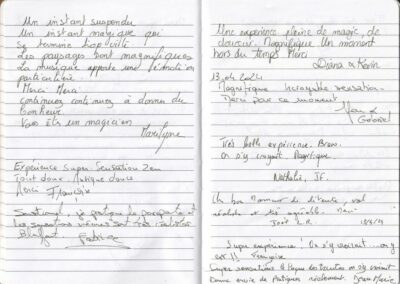 Un instant suspendu
Un instant magique qui
se termine trop vite
Les paysages sont magnifiques
La musique apporte une émotion
particulière
Merci Merci
continuez continuez à donner du
bonheur
Vous êtes un magicien
Marilyne
Expérience Super Sensation Zen
Tout doux. Antique doux
Merci Françoise
Sensationnel, je pratique le parapente et
les sensations vécues sont très réalistes
Bluffant Patrice
Une expérience pleine de magic, de
douceur. Magnifique Un moment
hors du temps Merci
Diana & Kevin
13.04.2024
Magnifique Incroyable sensation
Merci pour ce moment
&
Gabriel
Très belle expérience. Bravo.
On s'y croyait. Magnifique
Nathalie, JF.
Un bon moment de détente, vol
réaliste et très agréable. Merci
Super expérience! On s'y croirait... on y
est!! Françoise
Super sensations le temps des on s'y croirait
Donne envie de Pratiquer réellement. Jean Marie